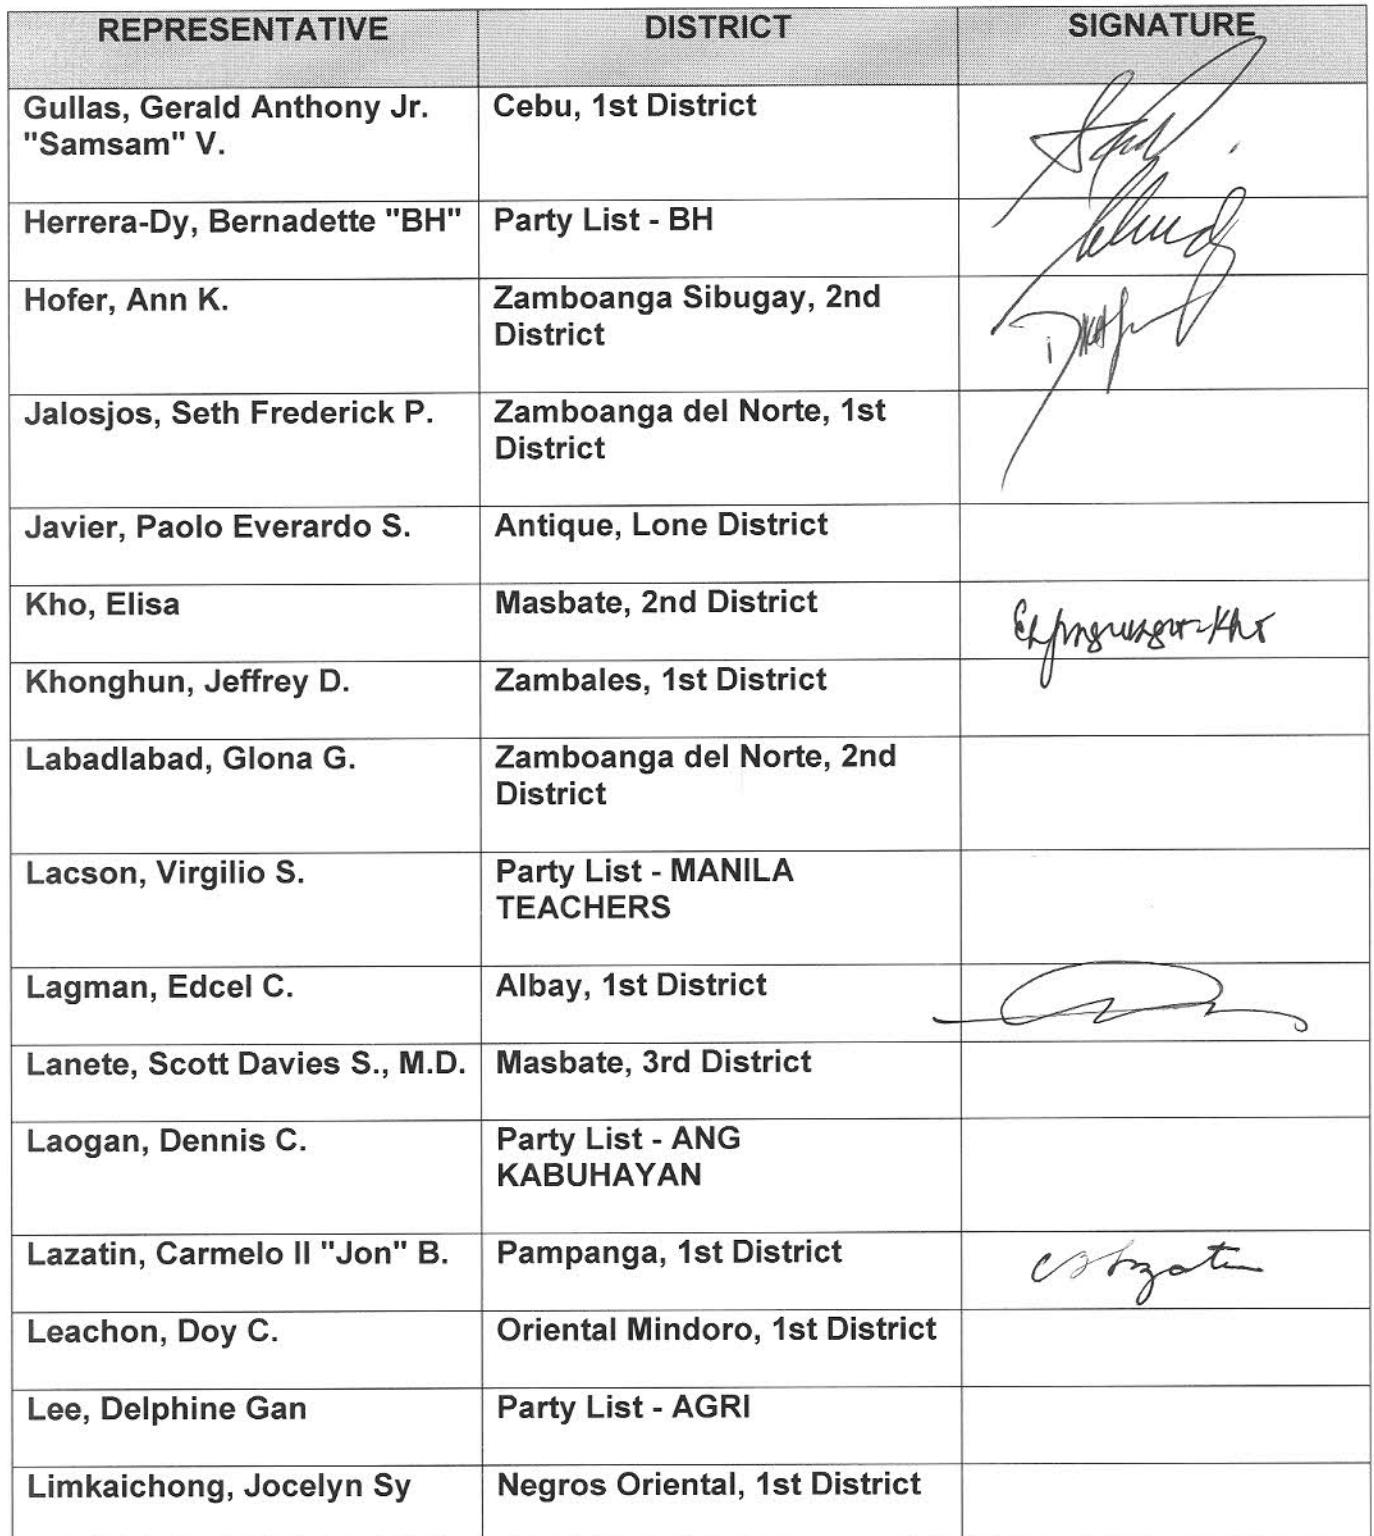 REPRESENTATIVE DISTRICT SIGNATURE
Gullas, Gerald Anthony Jr. Cebu, 1st District
"Samsam" V.
Herrera-Dy, Bernadette "BH" Party List - BH
Hofer, Ann K. Zamboanga Sibugay, 2nd
District
Jalosjos, Seth Frederick P. Zamboanga del Norte, 1st
District
Javier, Paolo Everardo S. Antique, Lone District
Kho, Elisa Masbate, 2nd District
Khonghun, Jeffrey D. Zambales, 1st District
Labadlabad, Glona G. Zamboanga del Norte, 2nd
District
Lacson, Virgilio S. Party List - MANILA
TEACHERS
Lagman, Edcel C. Albay, 1st District
Lanete, Scott Davies S., M.D. Masbate, 3rd District
Laogan, Dennis C. Party List - ANG
KABUHAYAN
Lazatin, Carmelo II "Jon" B. Pampanga, 1st District
Leachon, Doy C. Oriental Mindoro, 1st District
Lee, Delphine Gan Party List - AGRI
Limkaichong, Jocelyn Sy Negros Oriental, 1st District